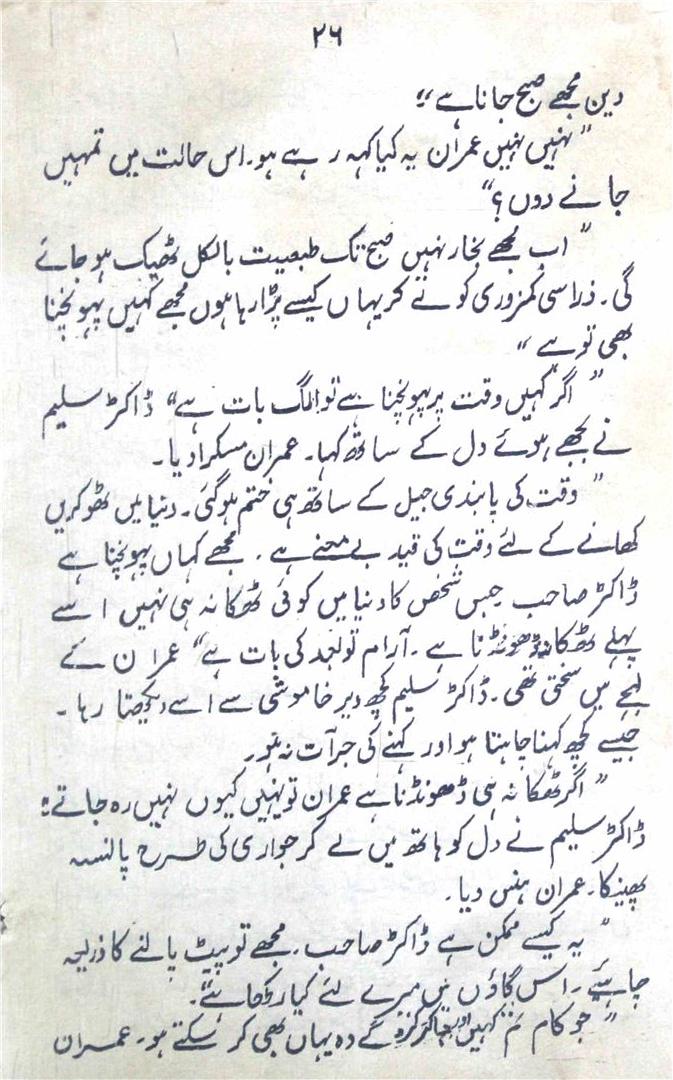 ۲۶
دیں مجھے صبح جانا ہے“
”نہیں نہیں عمران یہ کیا کہہ رہے ہو۔ اس حالت میں تمہیں
جانے دوں؟“
”اب مجھے بخار نہیں صبح تک طبعیت بالکل ٹھیک ہو جائے
گی۔ ذرا سی کمزوری کو لے کر یہاں کیسے پڑا رہا ہوں مجھے کہیں پہونچنا
بھی تو ہے“
”اگر کہیں وقت پر پہونچنا ہے تو الگ بات ہے“ ڈاکٹر سلیم
نے بجھے ہوئے دل کے ساتھ کہا۔ عمران مسکرا دیا۔
”وقت کی پابندی جیل کے ساتھ ہی ختم ہوگئی۔ دنیا میں ٹھوکریں
کھانے کے لئے وقت کی قید بے معنے ہے۔ مجھے کہاں پہونچنا ہے
ڈاکٹر صاحب جس شخص کا دنیا میں کوئی ٹھکانہ ہی نہیں اسے
پہلے ٹھکانہ ڈھونڈنا ہے۔ آرام تو بعد کی بات ہے“ عمران کے
لہجے میں سختی تھی۔ ڈاکٹر سلیم کچھ دیر خاموشی سے اسے دیکھتا رہا۔
جیسے کچھ کہنا چاہتا ہو اور کہنے کی جرآت نہ ہو۔
”اگر ٹھکانہ ہی ڈھونڈنا ہے عمران تو یہیں کیوں نہیں رہ جاتے“
ڈاکٹر سلیم نے دل کو ہاتھ میں لے کر جواری کی طرح پانسہ
پھینکا۔ عمران ہنس دیا۔
”یہ کیسے ممکن ہے ڈاکٹر صاحب۔ مجھے تو پیٹ پالنے کا ذریعہ
چاہئیے۔ اس گاؤں میں میرے لئے کیا رکھا ہے“۔
”جو کام تم کہیں اور جاکر کرو گے وہ یہاں بھی کر سکتے ہو۔ عمران